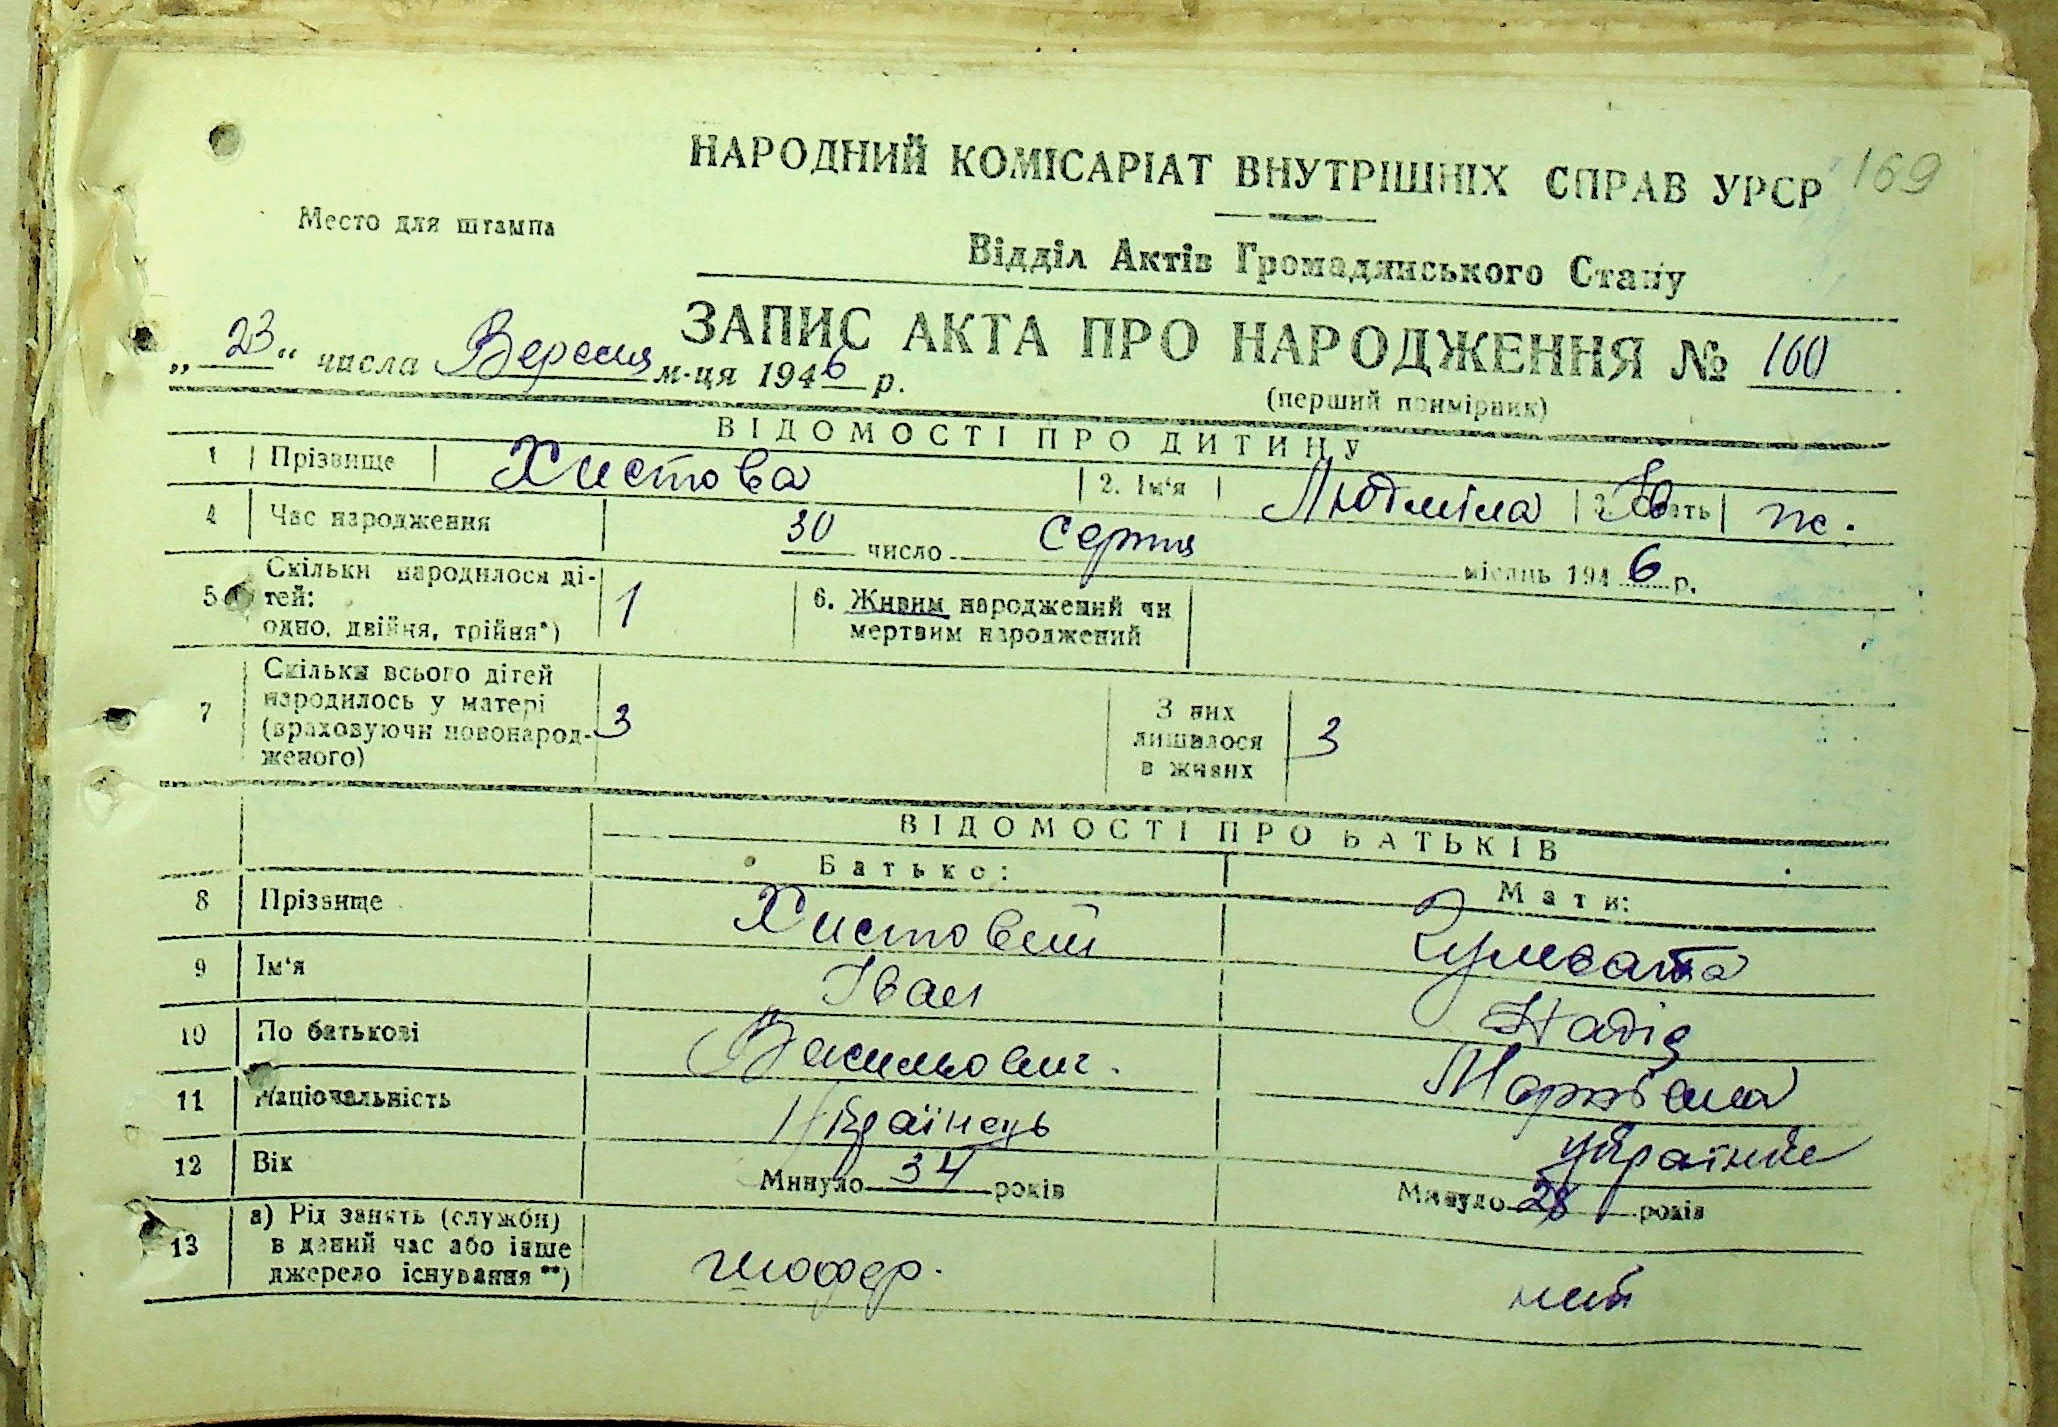 НАРОДНИЙ КОМІСАРІАТ ВНУТРІШНІХ СПРАВ УРСР 169
Место для штампа
Відділ Актів Громадянського Стану
ЗАПИС АКТА ПРО НАРОДЖЕННЯ № 160
„ 23 “ числа Вересня м-ця 1946 р.
(перший примірник)
ВІДОМОСТІ ПРО ДИТИНУ
1 Прізвище Хистова 2. Ім‘я Людміла Ів 3. Стать ж.
4 Час народження 30 число Серпня місяць 1946 р.
5 Скільки народилося дітей: одно, двійня, трійня*) 1 6. Живим народжений чи мертвим народжений
7 Скільки всього дітей народилось у матері (враховуючи новонародженого) 3 З них лишилося в живих 3
ВІДОМОСТІ ПРО БАТЬКІВ
Батько: Мати:
8 Прізвище Хистовий
9 Ім‘я Іван Надія
10 По батькові Васильович. Марківна
11 Національність Українець українка
12 Вік Минуло 34 років Минуло 28 років
13 а) Рід занять (служби) в даний час або інше джерело існування**) шофер.